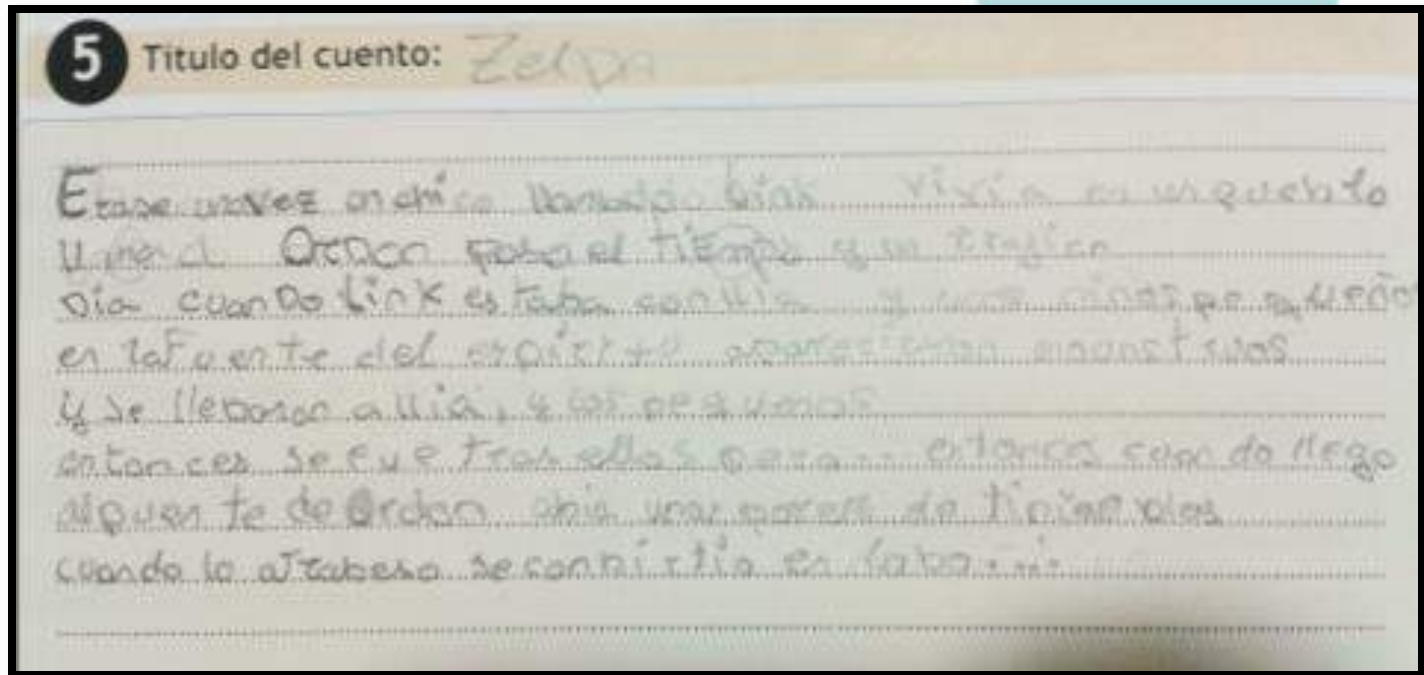 5 Título del cuento: Zelda
Erase unavez un chico llamado Link vivia en un pueblo
Ordon paso el tiempo y un
Dia cuanDo Link estaba con llia y unos niños pequeños
en laFuente del espiritu monstruos
y se llebaron a llia, y los
entonces se fue tras ellos pero... entonces cuando llego
al puente de Ordon abia una pared de tinieblas
cuando lo atrabeso se conbirtio en lobo...